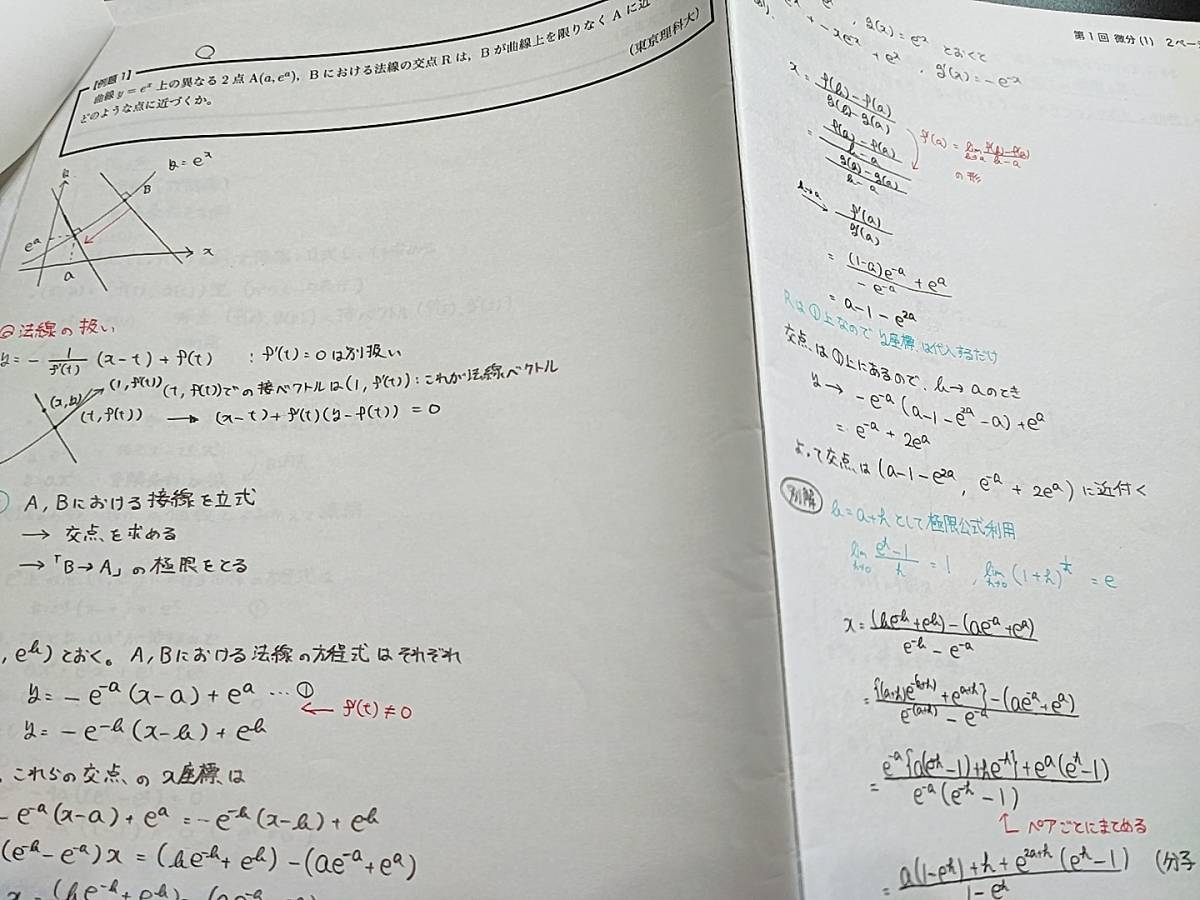 【例題1】
曲線 y = eˣ 上の異なる2点 A(a, eᵃ), B における法線の交点 R は, B が曲線上を限りなく A に近
どのような点に近づくか。
(東京理科大)
y = eˣ
B
eᵃ
a
x
法線の扱い
y = - 1/f'(t) (x-t) + f(t) : f'(t) = 0 は別扱い
(x, y)
(1, f'(t))
(t, f(t))
(t, f(t)) での接ベクトルは (1, f'(t)) : これが法線ベクトル
→ (x-t) + f'(t)(y-f(t)) = 0
A, B における接線を立式
→ 交点を求める
→「B→A」の極限をとる
, eᵇ) とおく。A, B における法線の方程式はそれぞれ
y = -e⁻ᵃ(x-a) + eᵃ … ①
← f'(t) ≠ 0
y = -e⁻ᵇ(x-b) + eᵇ
これらの交点の x座標は
-e⁻ᵃ(x-a) + eᵃ = -e⁻ᵇ(x-b) + eᵇ
(e⁻ᵇ - e⁻ᵃ)x = (be⁻ᵇ + eᵇ) - (ae⁻ᵃ + eᵃ)
第1回 微分(1) 2ペー
, g(x) = e⁻ˣ とおくと
-xe⁻ˣ + eˣ , g'(x) = -e⁻ˣ
x = (f(b) - f(a))/(g(b) - g(a))
= ((f(b) - f(a))/(b-a))/((g(b) - g(a))/(b-a))
f'(a) = lim b→a (f(b)-f(a))/(b-a)
の形
b→a → f'(a)/g'(a)
= ((1-a)e⁻ᵃ + eᵃ)/(-e⁻ᵃ)
= a-1-e²ᵃ
Rは①上なので y座標は代入するだけ
交点は①上にあるので、b→a のとき
y → -e⁻ᵃ(a-1-e²ᵃ-a) + eᵃ
= e⁻ᵃ + 2eᵃ
よって交点は (a-1-e²ᵃ, e⁻ᵃ + 2eᵃ) に近付く
別解
b = a+h として極限公式利用
lim h→0 (eʰ-1)/h = 1 , lim h→0 (1+h)^(1/h) = e
x = ((be⁻ᵇ + eᵇ) - (ae⁻ᵃ + eᵃ))/(e⁻ᵇ - e⁻ᵃ)
= ({(a+h)e⁻⁽ᵃ⁺ʰ⁾ + eᵃ⁺ʰ} - (ae⁻ᵃ + eᵃ))/(e⁻⁽ᵃ⁺ʰ⁾ - e⁻ᵃ)
= (e⁻ᵃ{a(e⁻ʰ-1) + he⁻ʰ} + eᵃ(eʰ-1))/(e⁻ᵃ(e⁻ʰ-1))
ペアごとにまとめる
= (a(1-eʰ) + h + e²ᵃ⁺ʰ(eʰ-1))/(1-eʰ) (分子